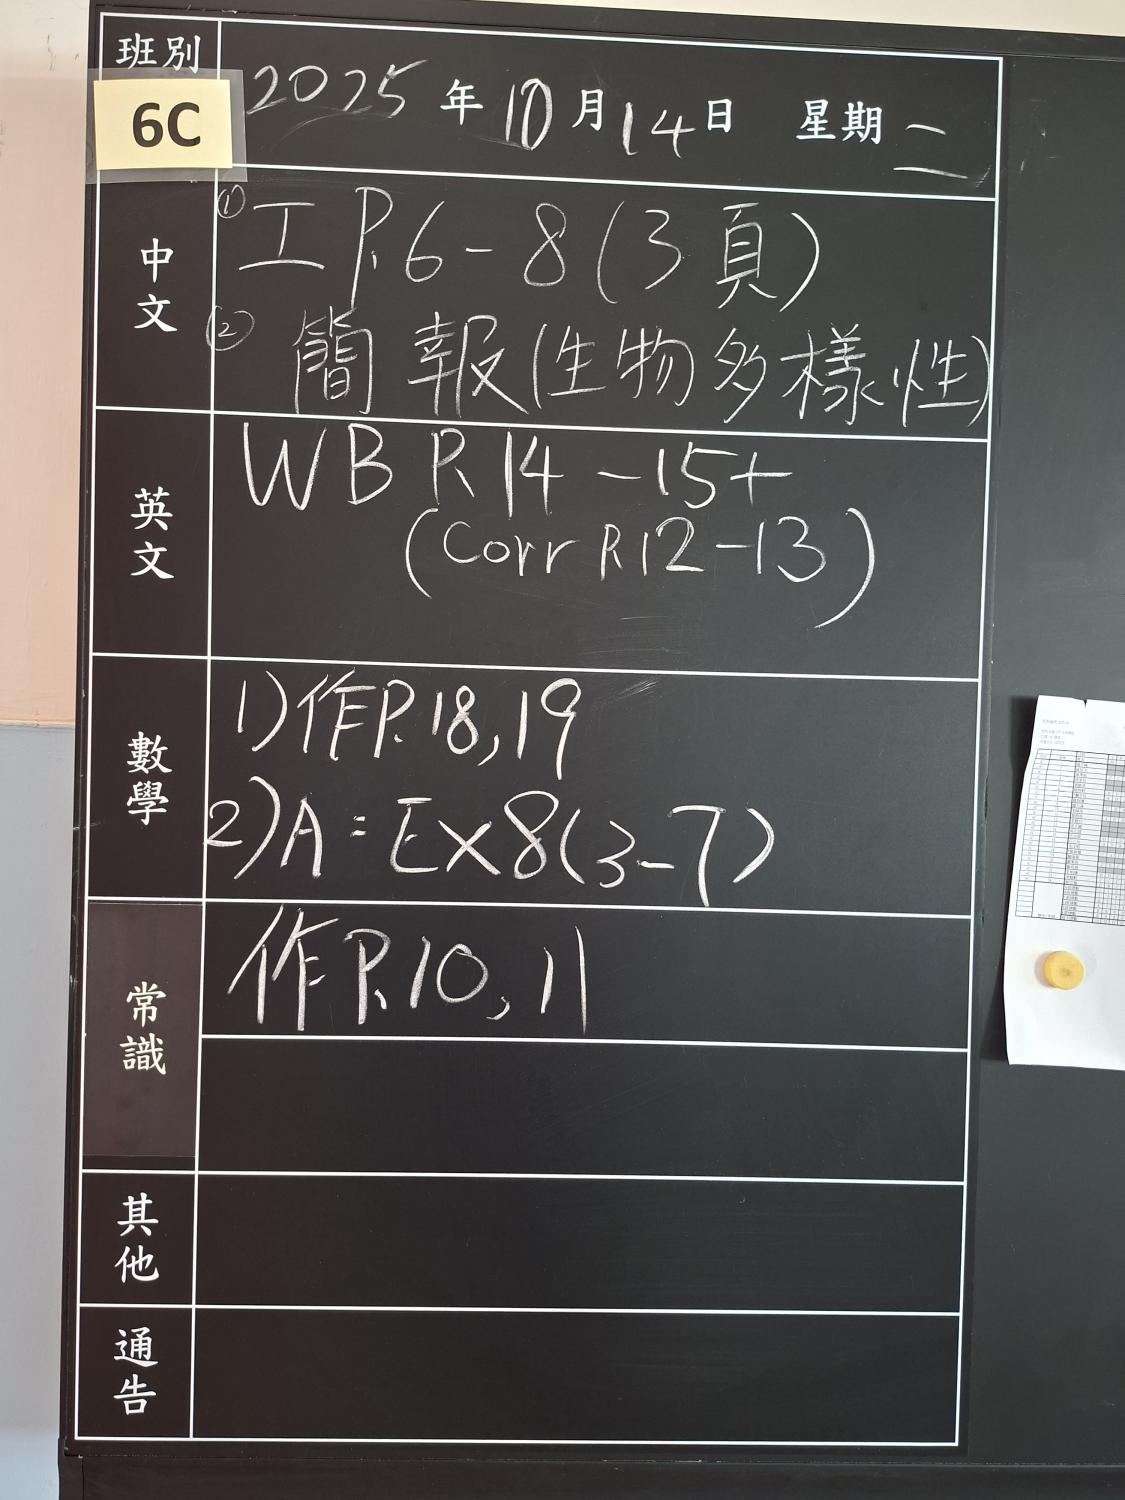 班別
6C
2025年10月14日 星期二
中文
① 工 P.6-8(3頁)
② 簡報(生物多樣性)
英文
WB P.14-15+
(Corr P.12-13)
數學
1)作P.18,19
2)A:Ex8(3-7)
常識
作P.10,11
其他
通告